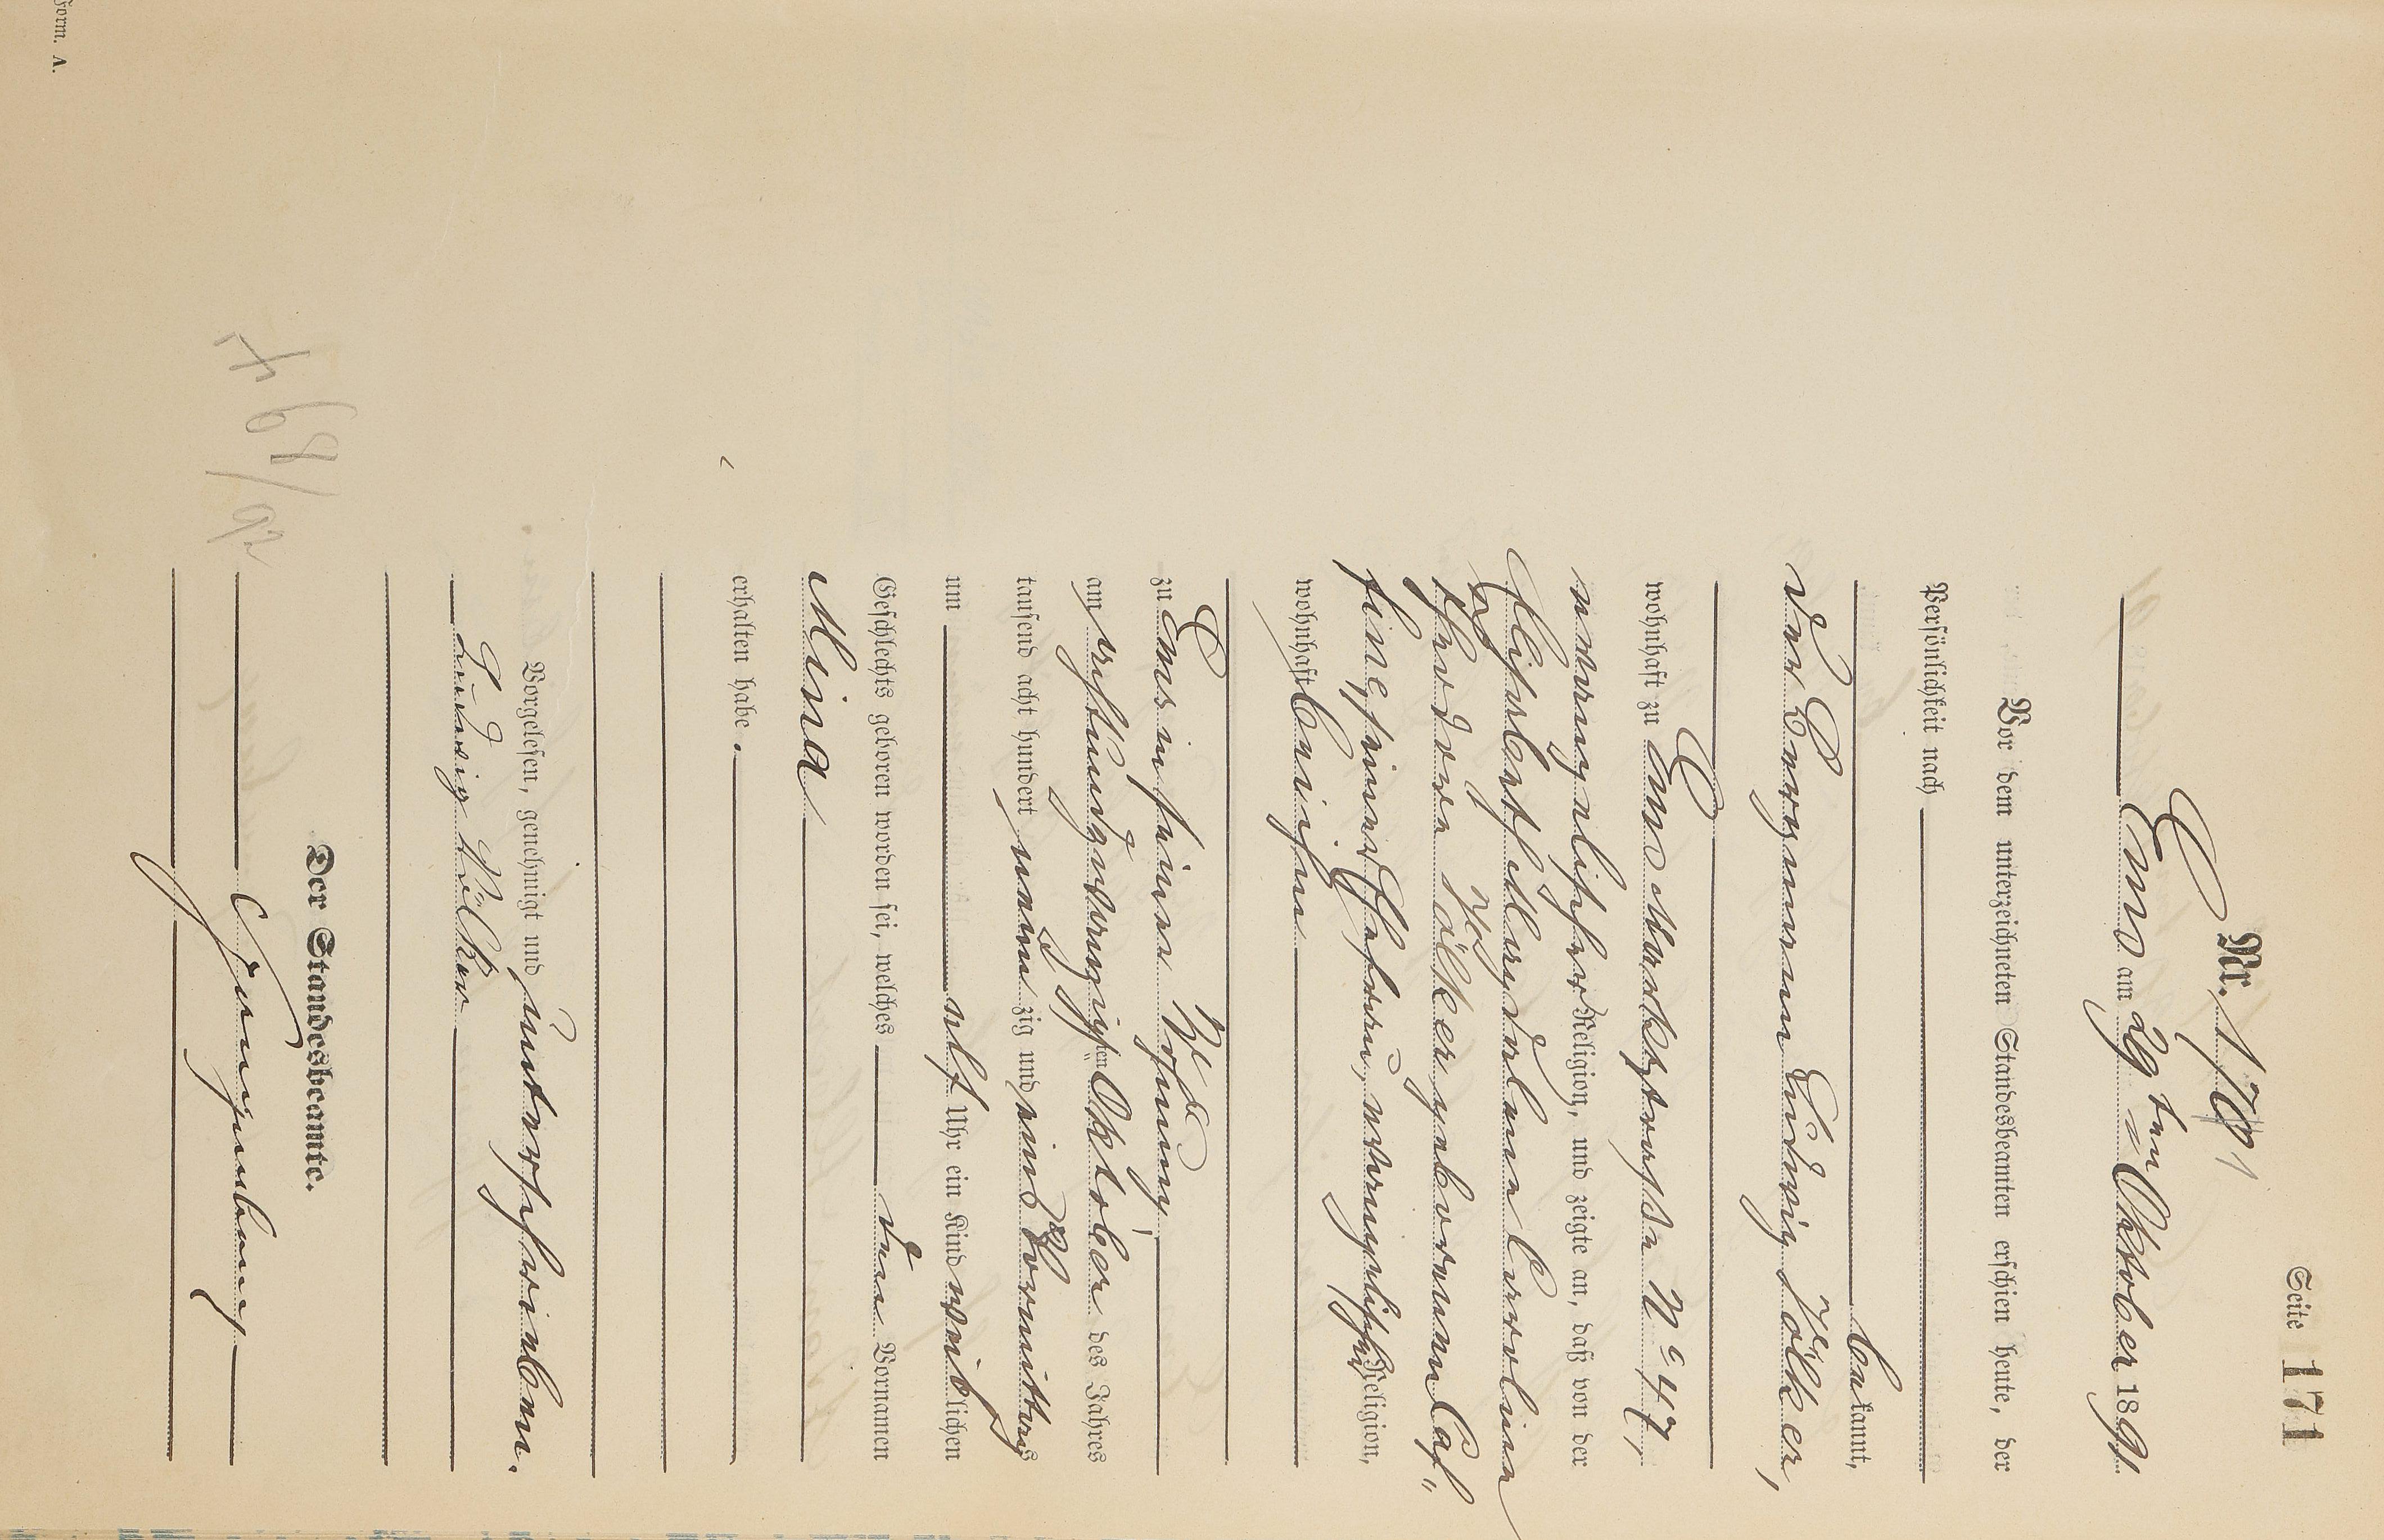 Seite 171
Nr. 171
Ems am 29 ten Oktober 1891.
Vor dem unterzeichneten Standesbeamten erschien heute, der
Persönlichkeit nach
bekannt,
der Bergmann Ludwig Völker,
wohnhaft zu Ems Marktstraße No 47,
evangelischer Religion, und zeigte an, daß von der
Elisabeth Magdalena Karolina
Theodora Völker geborenen
seiner Ehefrau, evangelischer Religion,
wohnhaft bei ihm
zu Ems in seiner Wohnung,
am achtundzwanzigsten Oktober des Jahres
tausend acht hundert neunzig und eins Vormittags
um elf Uhr ein Kind weiblichen
Geschlechts geboren worden sei, welches den Vornamen
Mina
erhalten habe.
Vorgelesen, genehmigt und unterschrieben.
Ludwig Völker
Der Standesbeamte.
Form. A.